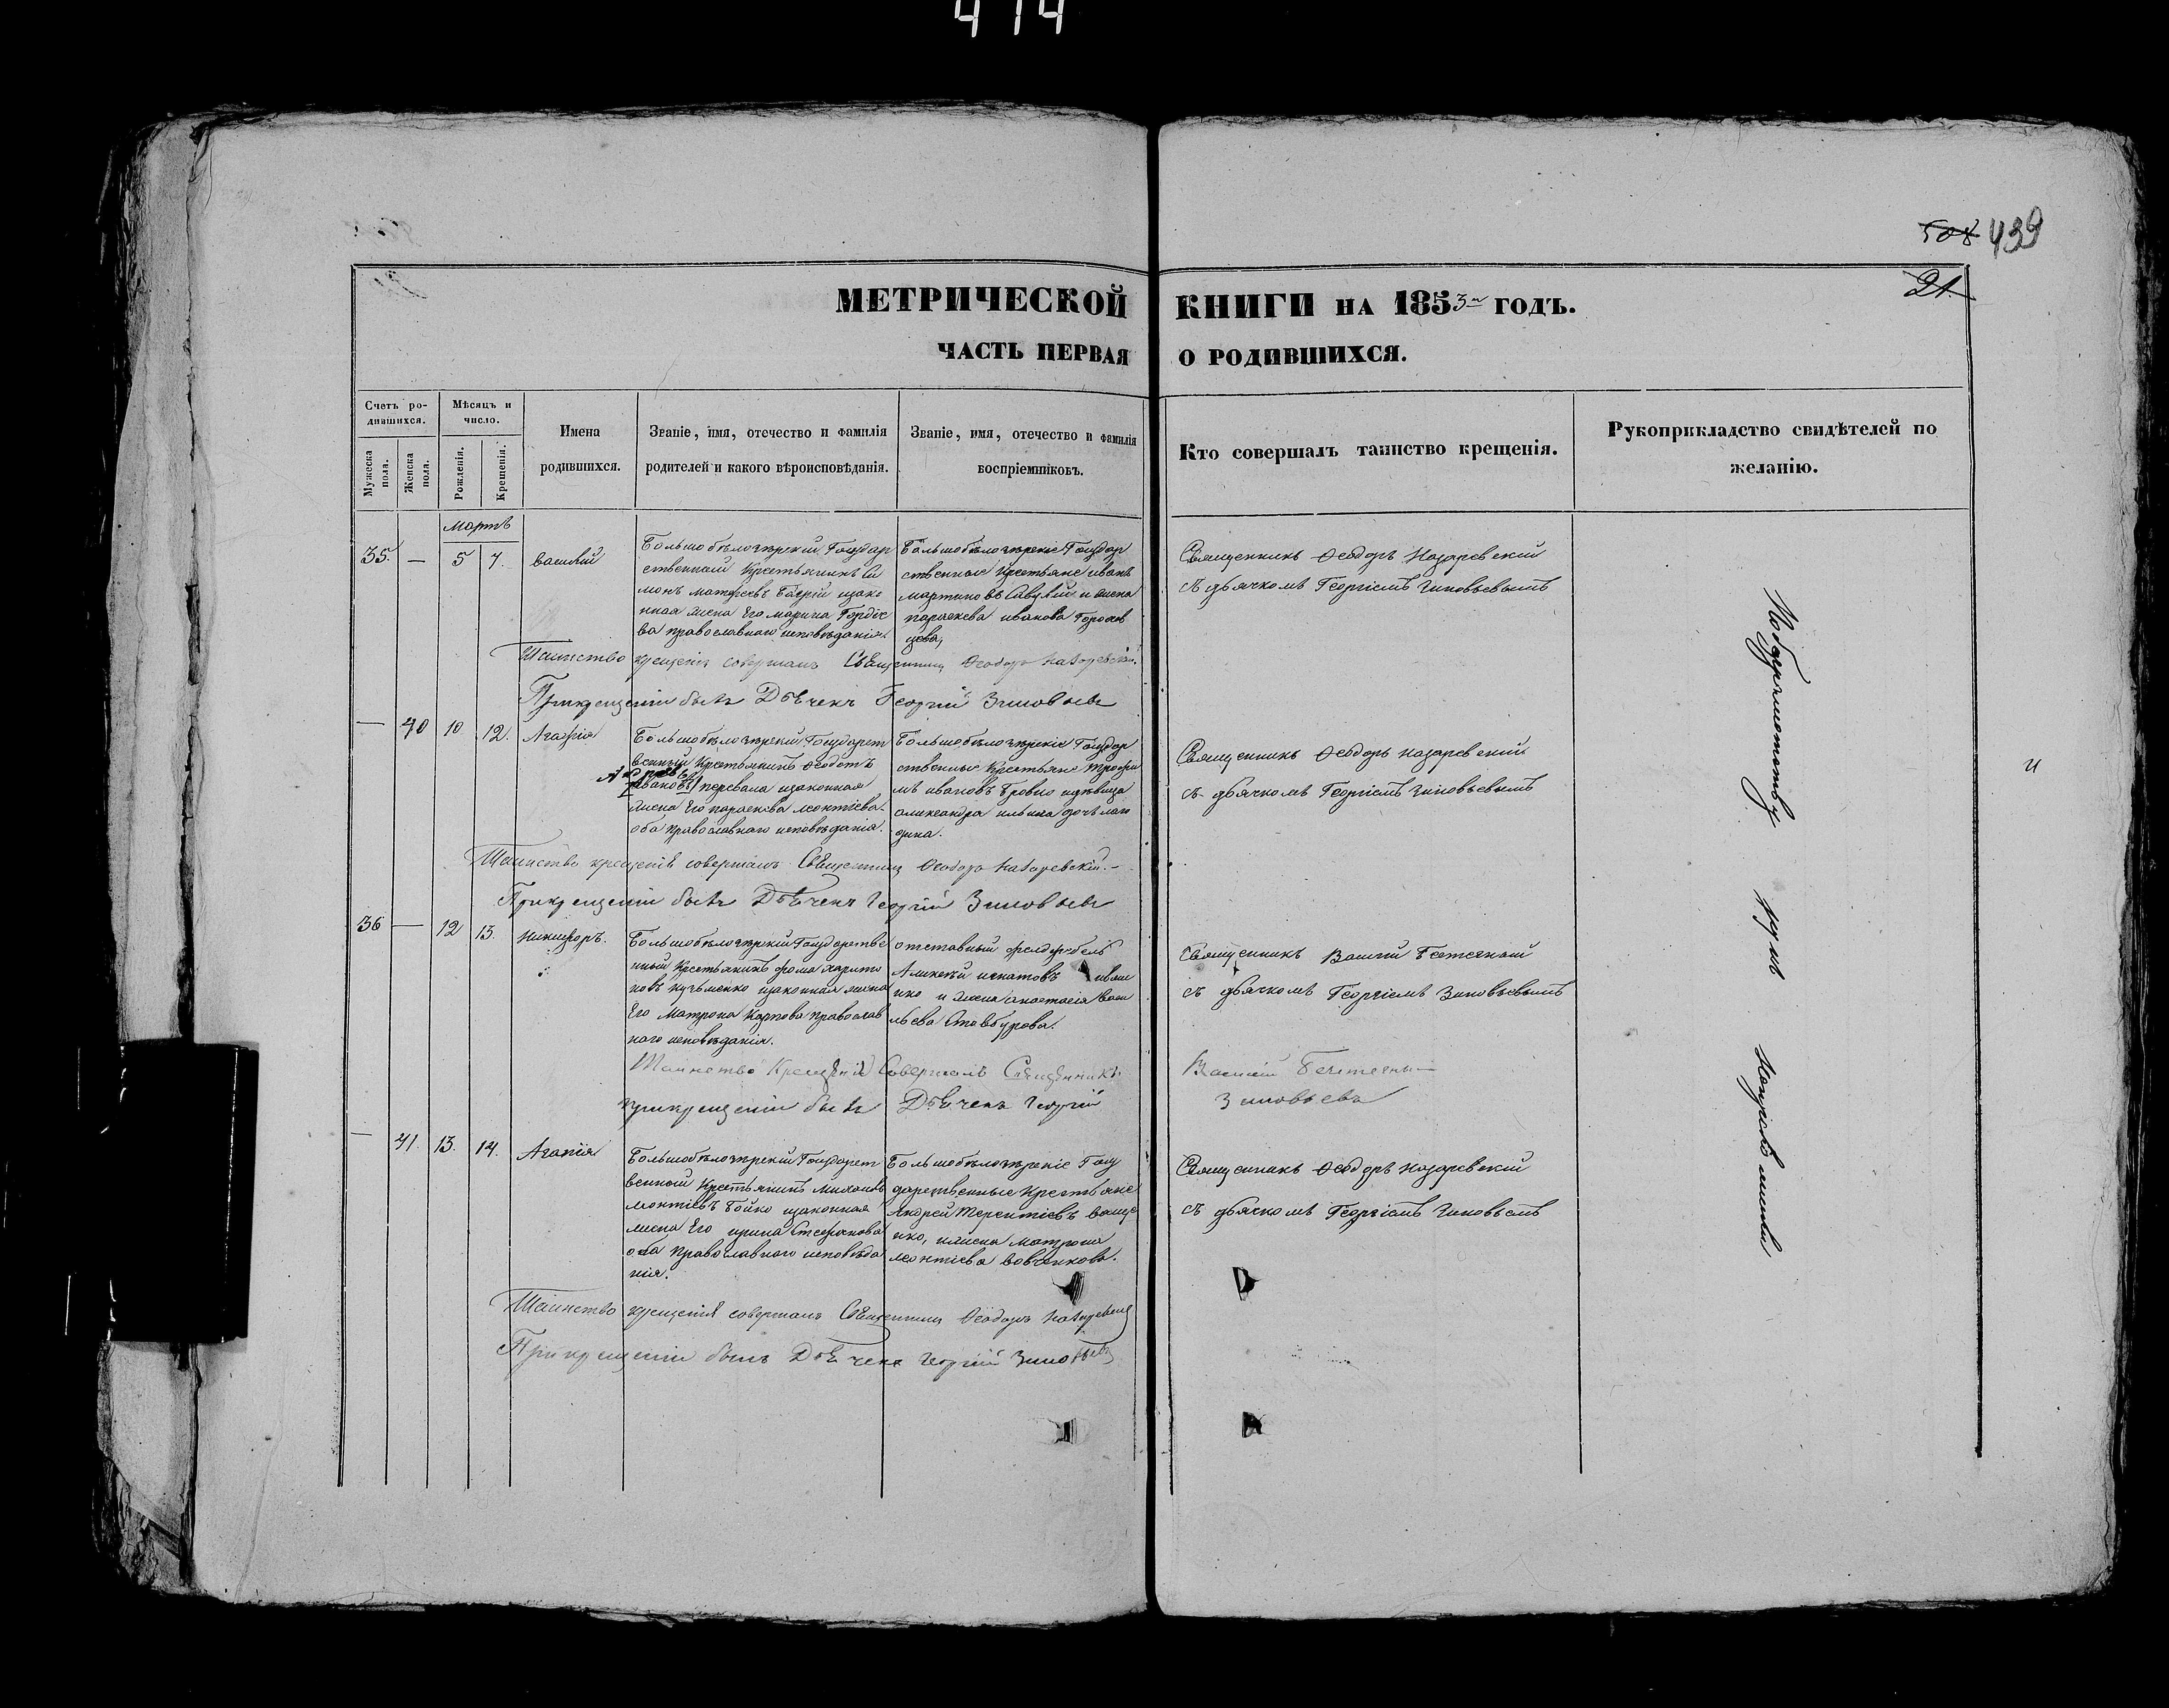 414
508 439
21
МЕТРИЧЕСКОЙ КНИГИ НА 1853 ГОДЪ.
ЧАСТЬ ПЕРВАЯ О РОДИВШИХСЯ.
Счетъ родившихся.
Мужеска пола.
Женска пола.
Мѣсяцъ и число.
Рожденія.
Крещенія.
Имена
родившихся.
Званіе, имя, отечество и фамилія
родителей и какого вѣроисповѣданія.
Званіе, имя, отечество и фамилія
воспріемниковъ.
Кто совершалъ таинство крещенія.
Рукоприкладство свидѣтелей по
желанію.
Мартъ
35. — 5 7. Василій
Большобѣлозѣрскій Государ
ственный Крестьянинъ Си
монъ Матфеевъ изако
нная жена Его Марина Гордіе
ва православнаго исповѣданія.
Большобѣлозѣрскіе Государ
ственные Крестьяне Иванъ
Мартиновъ Савулій и жена
параскева иванова
Священникъ Ѳеодоръ Назаревскій
съ дьячкомъ Георгіемъ Зиновьевымъ
Таинство крещенія совершалъ Священникъ Ѳеодоръ Назаревскій.
При крещеніи былъ Дьячекъ Георгій Зиновьевъ
— 40 10 12. Агафія
Большобѣлозѣрскій Государст
венный Крестьянинъ Ѳеодотъ
перевала изаконная
жена Его параскева леонтіева.
оба православнаго исповѣданія.
Большобѣлозѣрскіе Государ
ственные Крестьяне Трофи
мъ ивановъ Бровко идѣвица
александра ильина дочь
Священникъ Ѳеодоръ Назаревскій
съ дьячкомъ Георгіемъ Зиновьевымъ
Таинство крещенія совершалъ Священникъ Ѳеодоръ Назаревскій.
При крещеніи былъ Дьячекъ Георгій Зиновьевъ
36 — 12 13. Никифоръ.
Большобѣлозѣрскій Государстве
нный Крестьянинъ Фома харито
новъ кузьменко изаконная жена
Его Матрона Карпова православ
наго исповѣданія.
отставный фелдфебель
Алексѣй игнатовъ
и жена анастасія Васи
льева
Священникъ Василій
съ дьячкомъ Георгіемъ Зиновьевымъ
Таинство Крещенія Совершалъ Священникъ Василій
при крещеніи былъ Дьячекъ Георгій Зиновьевъ
— 41. 13. 14. Агапія
Большобѣлозѣрскій Государст
венный Крестьянинъ Михаилъ
леонтіевъ Бойко изаконная
жена Его ирина Стефанова
оба православнаго исповѣда
нія.
Большобѣлозѣрскіе Госу
дарственные Крестьяне
Андрей Терентіевъ
нко, ижена Матрона
леонтіева Вовченкова.
Священникъ Ѳеодоръ Назаревскій
съ дьячкомъ Георгіемъ
Таинство крещенія совершалъ Священникъ Ѳеодоръ
При крещеніи былъ Дьячекъ Георгій Зиновьевъ